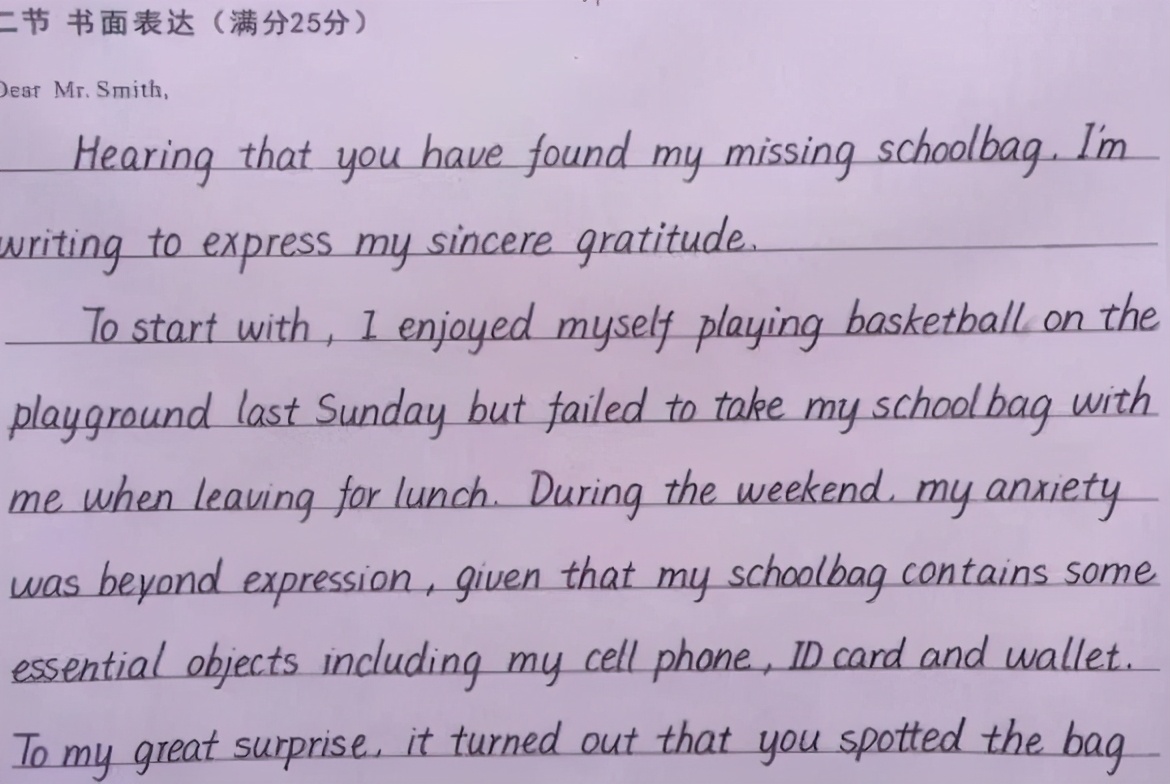 二节 书面表达（满分25分）
Dear Mr. Smith,
Hearing that you have found my missing schoolbag. I'm
writing to express my sincere gratitude.
To start with, I enjoyed myself playing basketball on the
playground last Sunday but failed to take my schoolbag with
me when leaving for lunch. During the weekend. my anxiety
was beyond expression, given that my schoolbag contains some
essential objects including my cell phone, ID card and wallet.
To my great surprise, it turned out that you spotted the bag